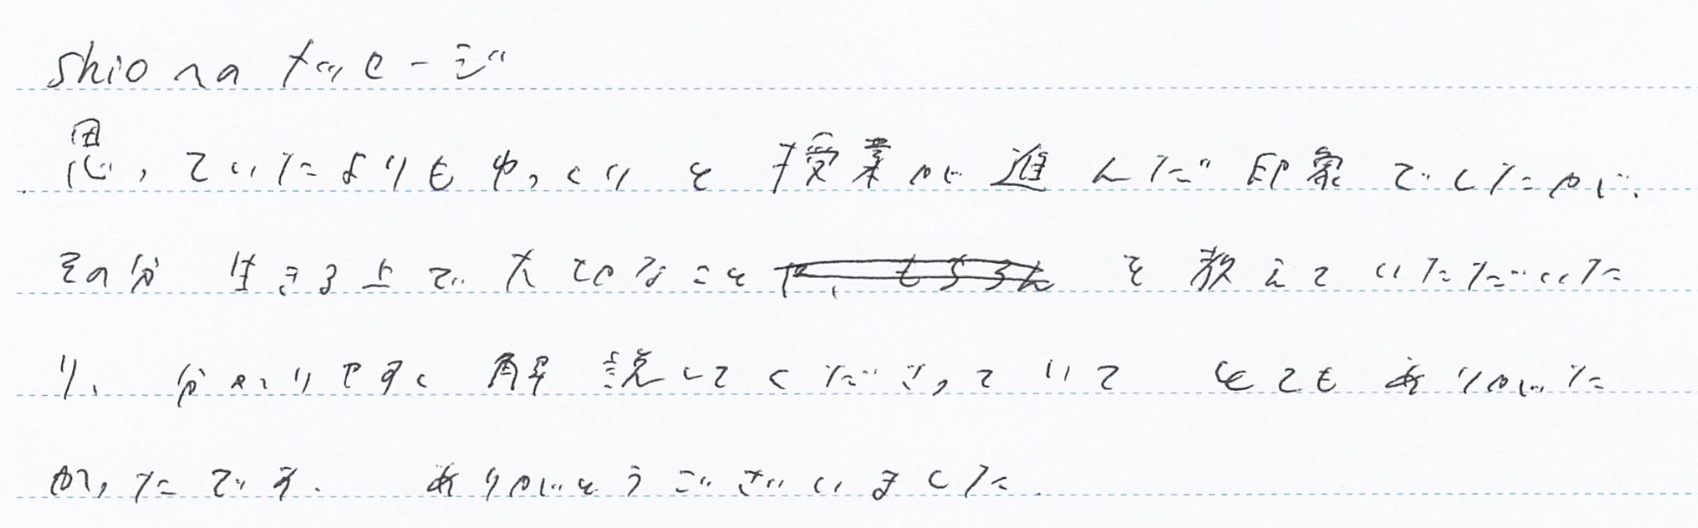 shioへのメッセージ
思っていたよりもゆっくりと授業が進んだ印象でしたが、
その分 生きる上で大切なことを教えていただいた
り、分かりやすく解説してくださっていて とてもありがた
かったです。 ありがとうございました。